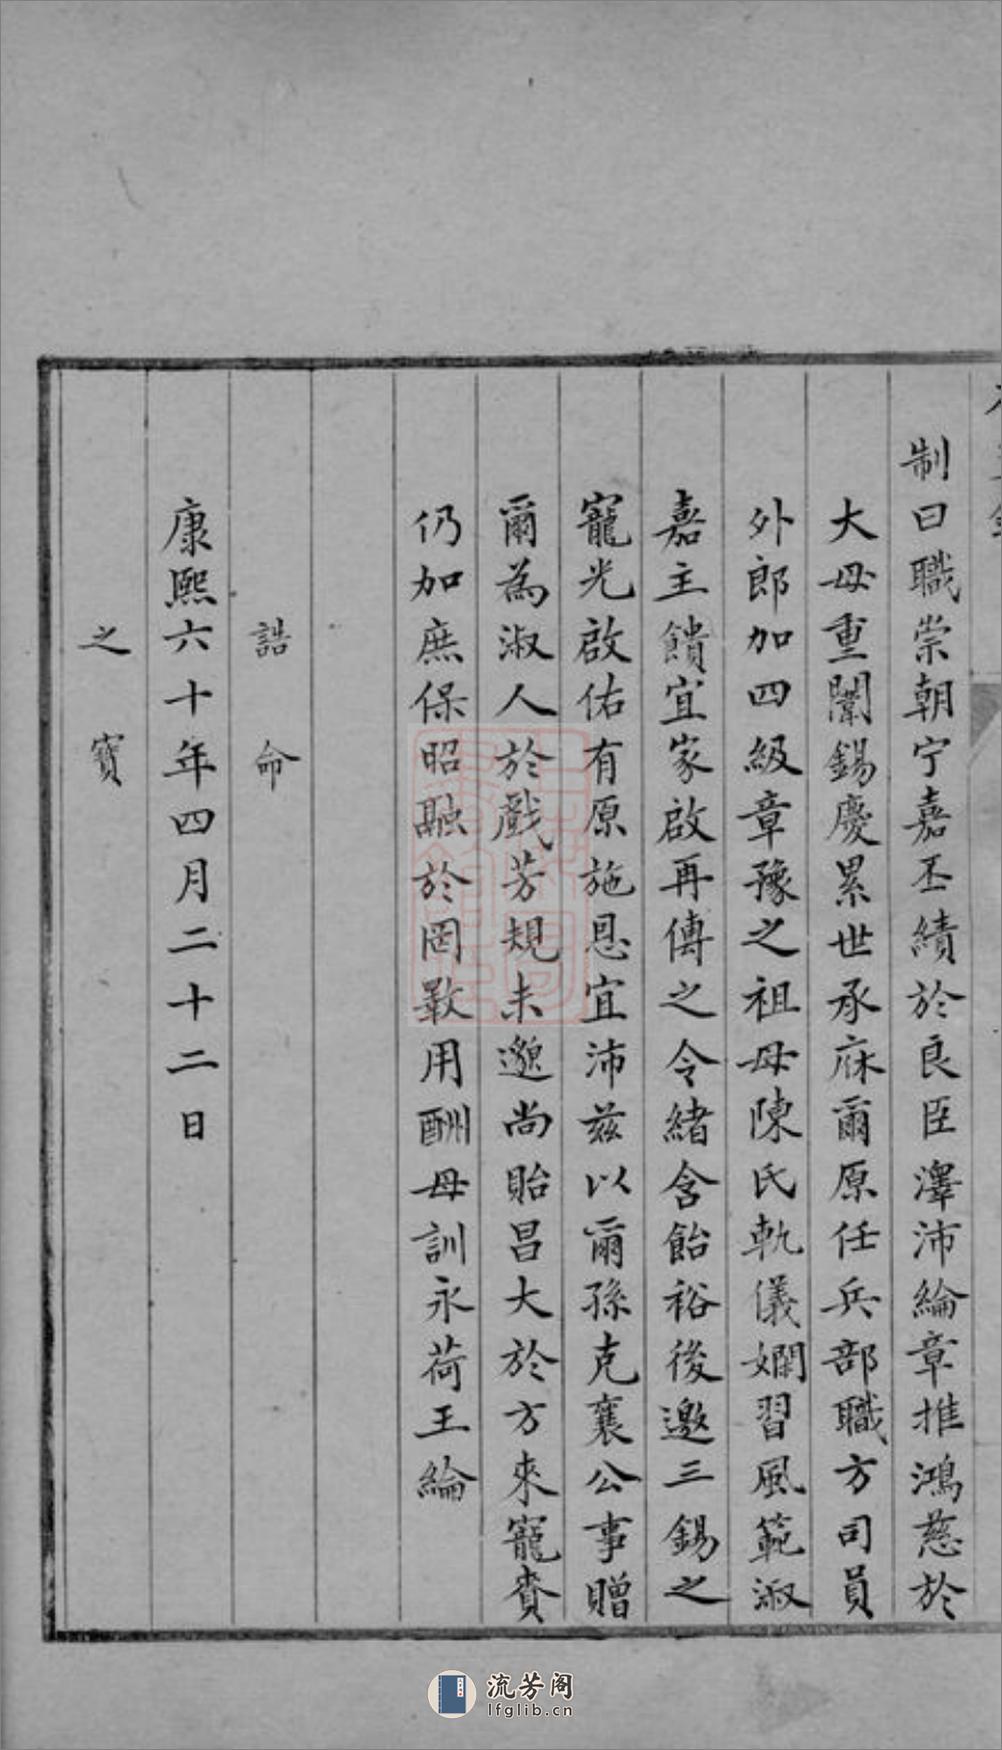 制曰職崇朝宁嘉丕績於良臣澤沛綸章推鴻慈於
大母重闈錫慶累世承庥爾原任兵部職方司員
外郎加四級章豫之祖母陳氏軌儀嫻習風範淑
嘉主饋宜家啟再傳之令緒含飴裕後邀三錫之
寵光啟佑有原施恩宜沛茲以爾孫克襄公事贈
爾為淑人於戲芳規未邈尚貽昌大於方來寵賚
仍加庶保昭融於罔斁用酬母訓永荷王綸
誥命
康熙六十年四月二十二日
之寶
流芳阁
lfglib.cn